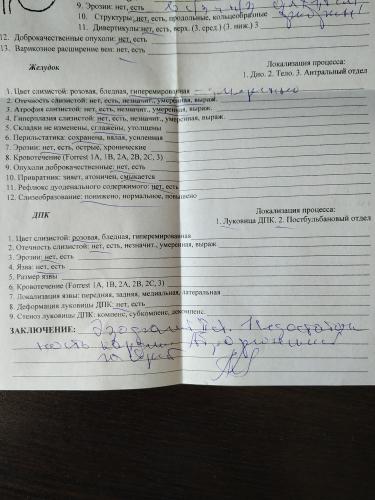 9. Эрозии: нет, есть
10. Структуры: нет, есть, продольные, кольцеобразные
11. Дивертикулы: нет, есть, верх. (3. сред.) (3. ниж.) 3
12. Доброкачественные опухоли: нет, есть
13. Варикозное расширение вен: нет, есть
Желудок
Локализация процесса:
1. Дно. 2. Тело. 3. Антральный отдел
1. Цвет слизистой: розовая, бледная, гиперемированная - умеренно
2. Отечность слизистой: нет, есть, незначит., умеренная, выраж.
3. Атрофия слизистой: нет, есть, незначит., умеренная, выраж.
4. Гиперплазия слизистой: нет, есть, незначит., умеренная, выраж.
5. Складки не изменены, сглажены, утолщены
6. Перильстатика: сохранена, вялая, усиленная
7. Эрозии: нет, есть, острые, хронические
8. Кровотечение (Forrest 1A, 1B, 2A, 2B, 2C, 3)
9. Опухоли доброкачественные: нет, есть
10. Привратник: зияет, атоничен, смыкается
11. Рефлюкс дуоденального содержимого: нет, есть
12. Слизеобразование: понижено, нормальное, повышено
ДПК
Локализация процесса:
1. Луковица ДПК. 2. Постбульбановый отдел
1. Цвет слизистой: розовая, бледная, гиперемированная
2. Отечность слизистой: нет, есть, незначит., умеренная, выраж.
3. Эрозии: нет, есть
4. Язва: нет, есть
5. Размер язвы
6. Кровотечение (Forrest 1A, 1B, 2A, 2B, 2C, 3)
7. Локализация язвы: передняя, задняя, медиальная, латеральная
8. Деформация луковицы ДПК: нет, есть
9. Стеноз луковицы ДПК: компенс, субкомпенс, декомпенс.
ЗАКЛЮЧЕНИЕ: Эзофагит Недостаточ
ность кардии Атрофический
гастрит